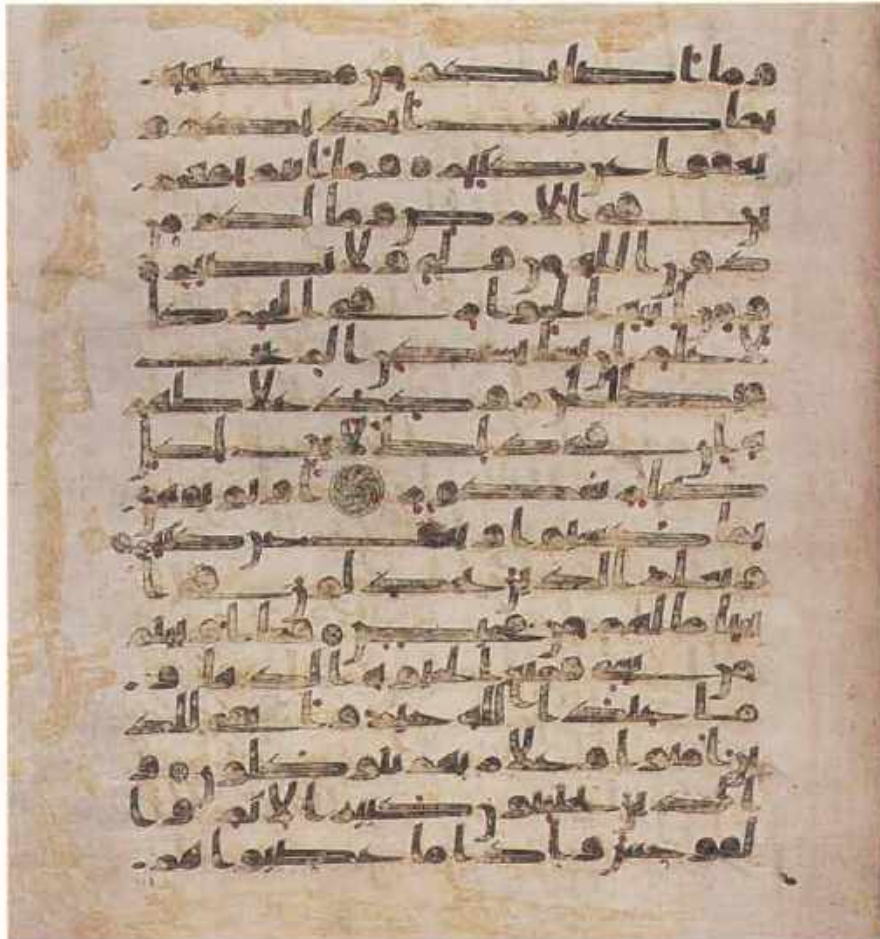 وما اصبكم من مصيبة
فبما كسبت ايديكم و
يعفوا عن كثير وما انتم بمعجز
ين في الارض وما لكم من
دون الله من ولي ولا نصير
ومن ايته الجوار في البحر كا
لاعلم ان يشا يسكن الريح
فيظللن رواكد على ظهر
ه ان في ذلك لايت لكل
صبار شكور او يوبقهن
بما كسبوا ويعف عن كثير
ويعلم الذين يجدلون في ا
يتنا ما لهم من محيص فما اوتيتم
من شي فمتع الحيوة الدنيا و
ما عند الله خير وابقى للذ
ين امنوا وعلى ربهم يتوكلون و
الذين يجتنبون كبير الاثم وا
لفوحش واذا ما غضبوا هم